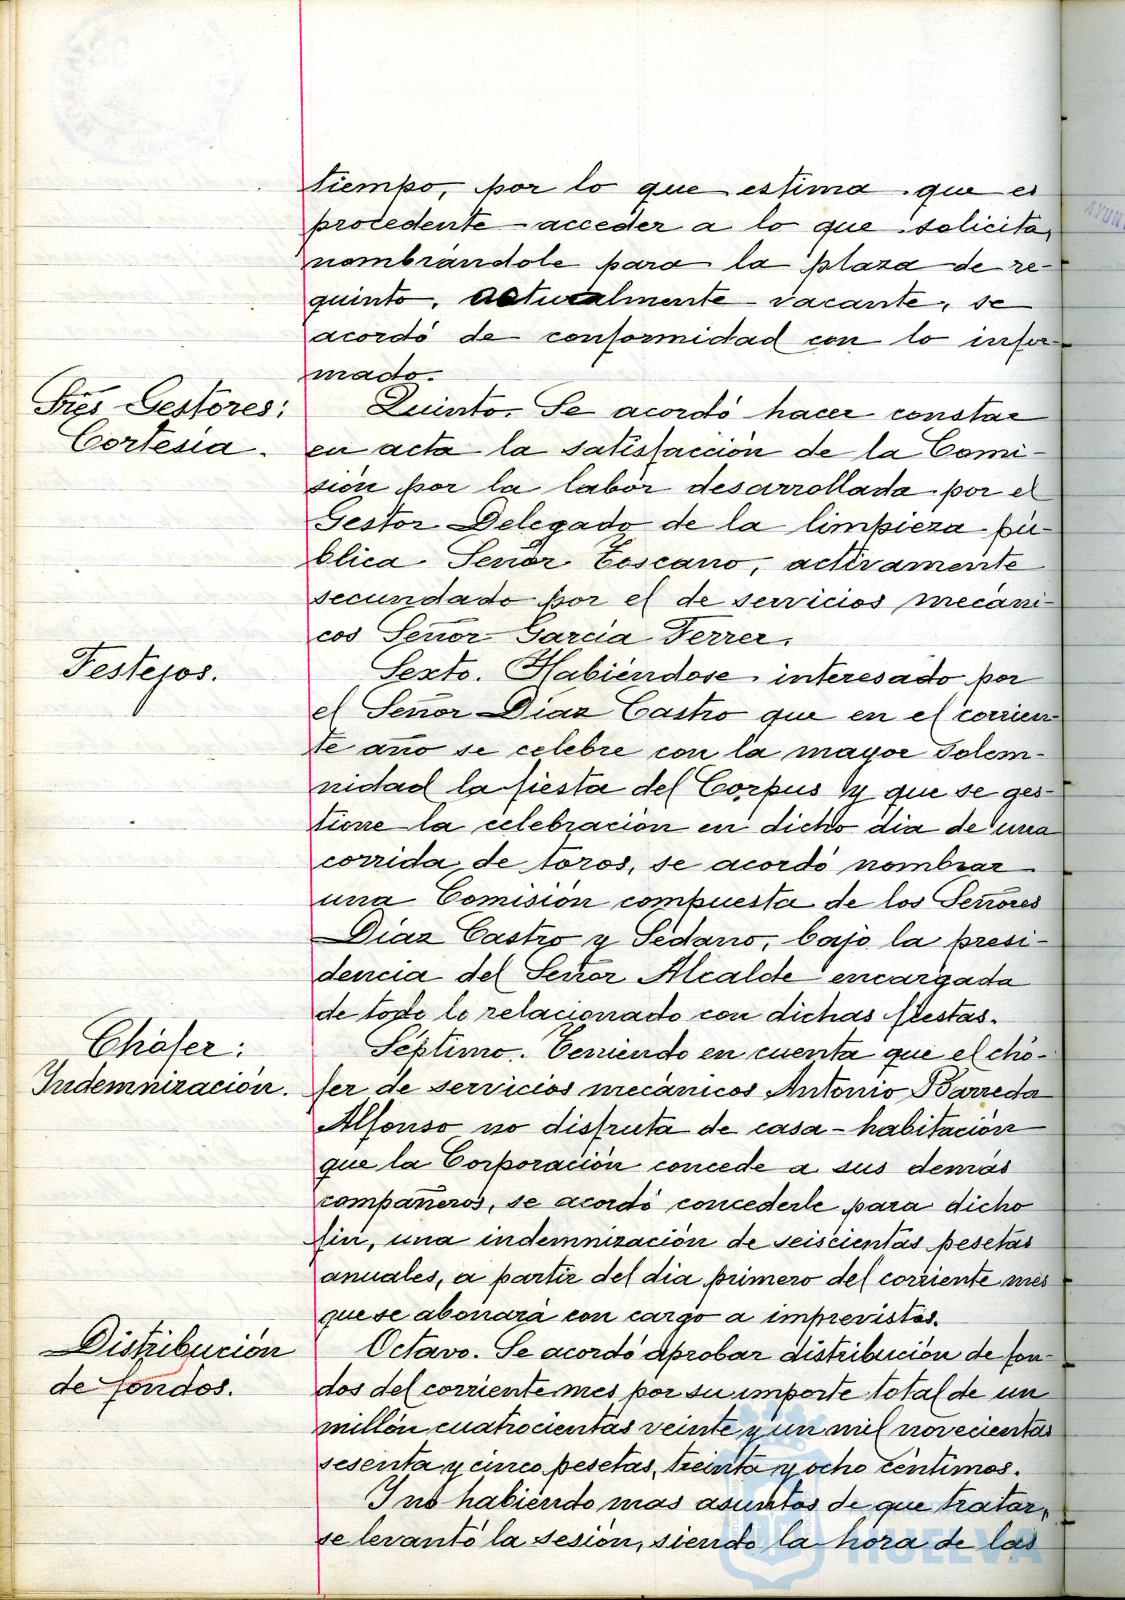 tiempo, por lo que estima que es
procedente acceder a lo que solicita,
nombrándole para la plaza de re-
quinto, actualmente vacante, se
acordó de conformidad con lo infor-
mado.
Sres Gestores:
Cortesía.
Quinto. Se acordó hacer constar
en acta la satisfacción de la Comi-
sión por la labor desarrollada por el
Gestor Delegado de la limpieza pú-
blica Señor Toscano, activamente
secundado por el de servicios mecáni-
cos Señor García Ferrer.
Festejos.
Sexto. Habiéndose interesado por
el Señor Díaz Castro que en el corrien-
te año se celebre con la mayor solem-
nidad la fiesta del Corpus y que se ges-
tione la celebración en dicho día de una
corrida de toros, se acordó nombrar
una Comisión compuesta de los Señores
Díaz Castro y Sedano, bajo la presi-
dencia del Señor Alcalde encargada
de todo lo relacionado con dichas fiestas.
Chófer:
Indemnización.
Séptimo. Teniendo en cuenta que el chó-
fer de servicios mecánicos Antonio Barreda
Alfonso no disfruta de casa-habitación
que la Corporación concede a sus demás
compañeros, se acordó concederle para dicho
fin, una indemnización de seiscientas pesetas
anuales, a partir del día primero del corriente mes
que se abonará con cargo a imprevistos.
Distribución
de fondos.
Octavo. Se acordó aprobar distribución de fon-
dos del corriente mes por su importe total de un
millón cuatrocientas veinte y un mil novecientas
sesenta y cinco pesetas, treinta y ocho céntimos.
Y no habiendo mas asuntos de que tratar,
se levantó la sesión, siendo la hora de las
HUELVA